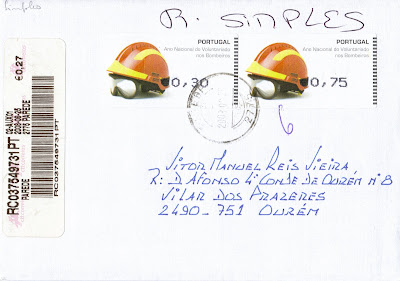 Simples
R. SIMPLES
PORTUGAL
Ano Nacional do Voluntariado
nos Bombeiros
0,30
PORTUGAL
Ano Nacional do Voluntariado
nos Bombeiros
0,75
€0,27
2008-09-05
2775 PAREDE
RC037849731PT
PAREDE
RC037849731PT
6
VITOR MANUEL REIS VIEIRA
R: D AFONSO 4º CONDE DE OURÉM Nº8
VILAR DOS PRAZERES
2490-751 OURÉM